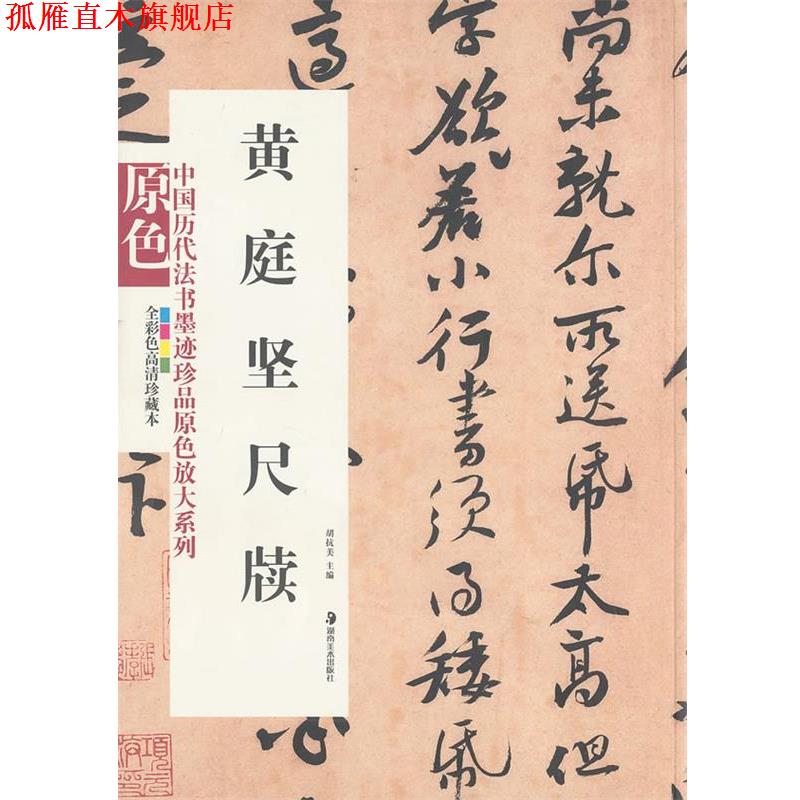 孤雁直木旗舰店
黄庭坚尺牍
原色
中国历代法书墨迹珍品原色放大系列
全彩色高清珍藏本
胡抗美 主编
湖南美术出版社
尚未就尔所送纸太高但
字欲若小行书须得矮纸